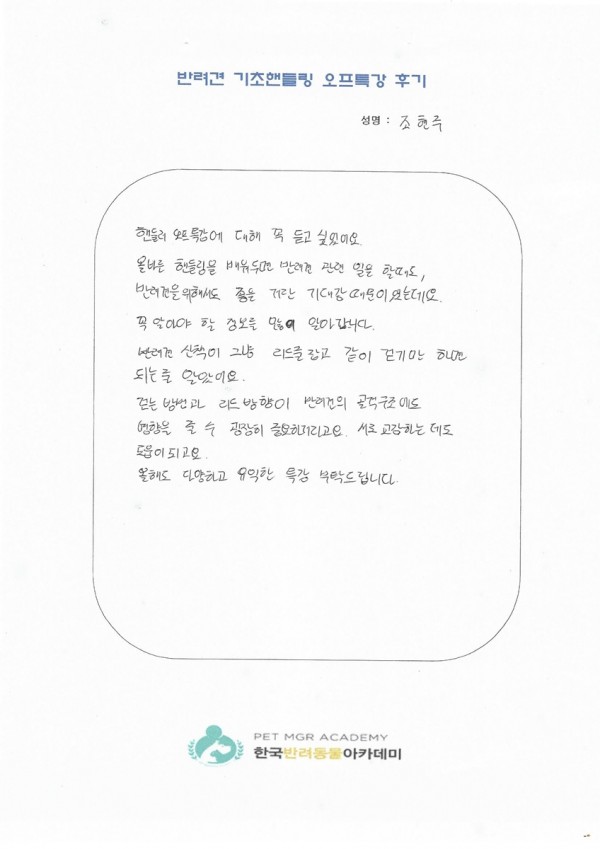 반려견 기초핸들링 오프특강 후기
성명 : 조현주
핸들러 오프특강에 대해 꼭 듣고 싶었어요.
올바른 핸들링을 배워두면 반려견 관련 일을 할때도,
반려견을위해서도 좋을 거란 기대감 때문이었는데요.
꼭 알아야 할 정보를 많이 알아갑니다.
반려견 산책이 그냥 리드줄잡고 같이 걷기만 하면
되는줄 알았어요.
걷는 방법과 리드 방향이 반려견의 골격구조에도
영향을 줄 수 굉장히 중요하더라고요. 서로 교감하는 데도
도움이 되고요.
올해도 다양하고 유익한 특강 부탁드립니다.
PET MGR ACADEMY
한국반려동물아카데미